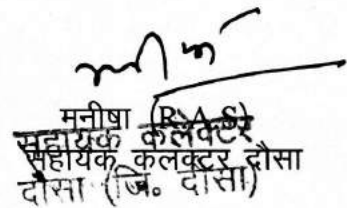 मनीषा (R.A.S)
सहायक कलेक्टर
सहायक कलक्टर दौसा
दौसा (जि. दौसा)